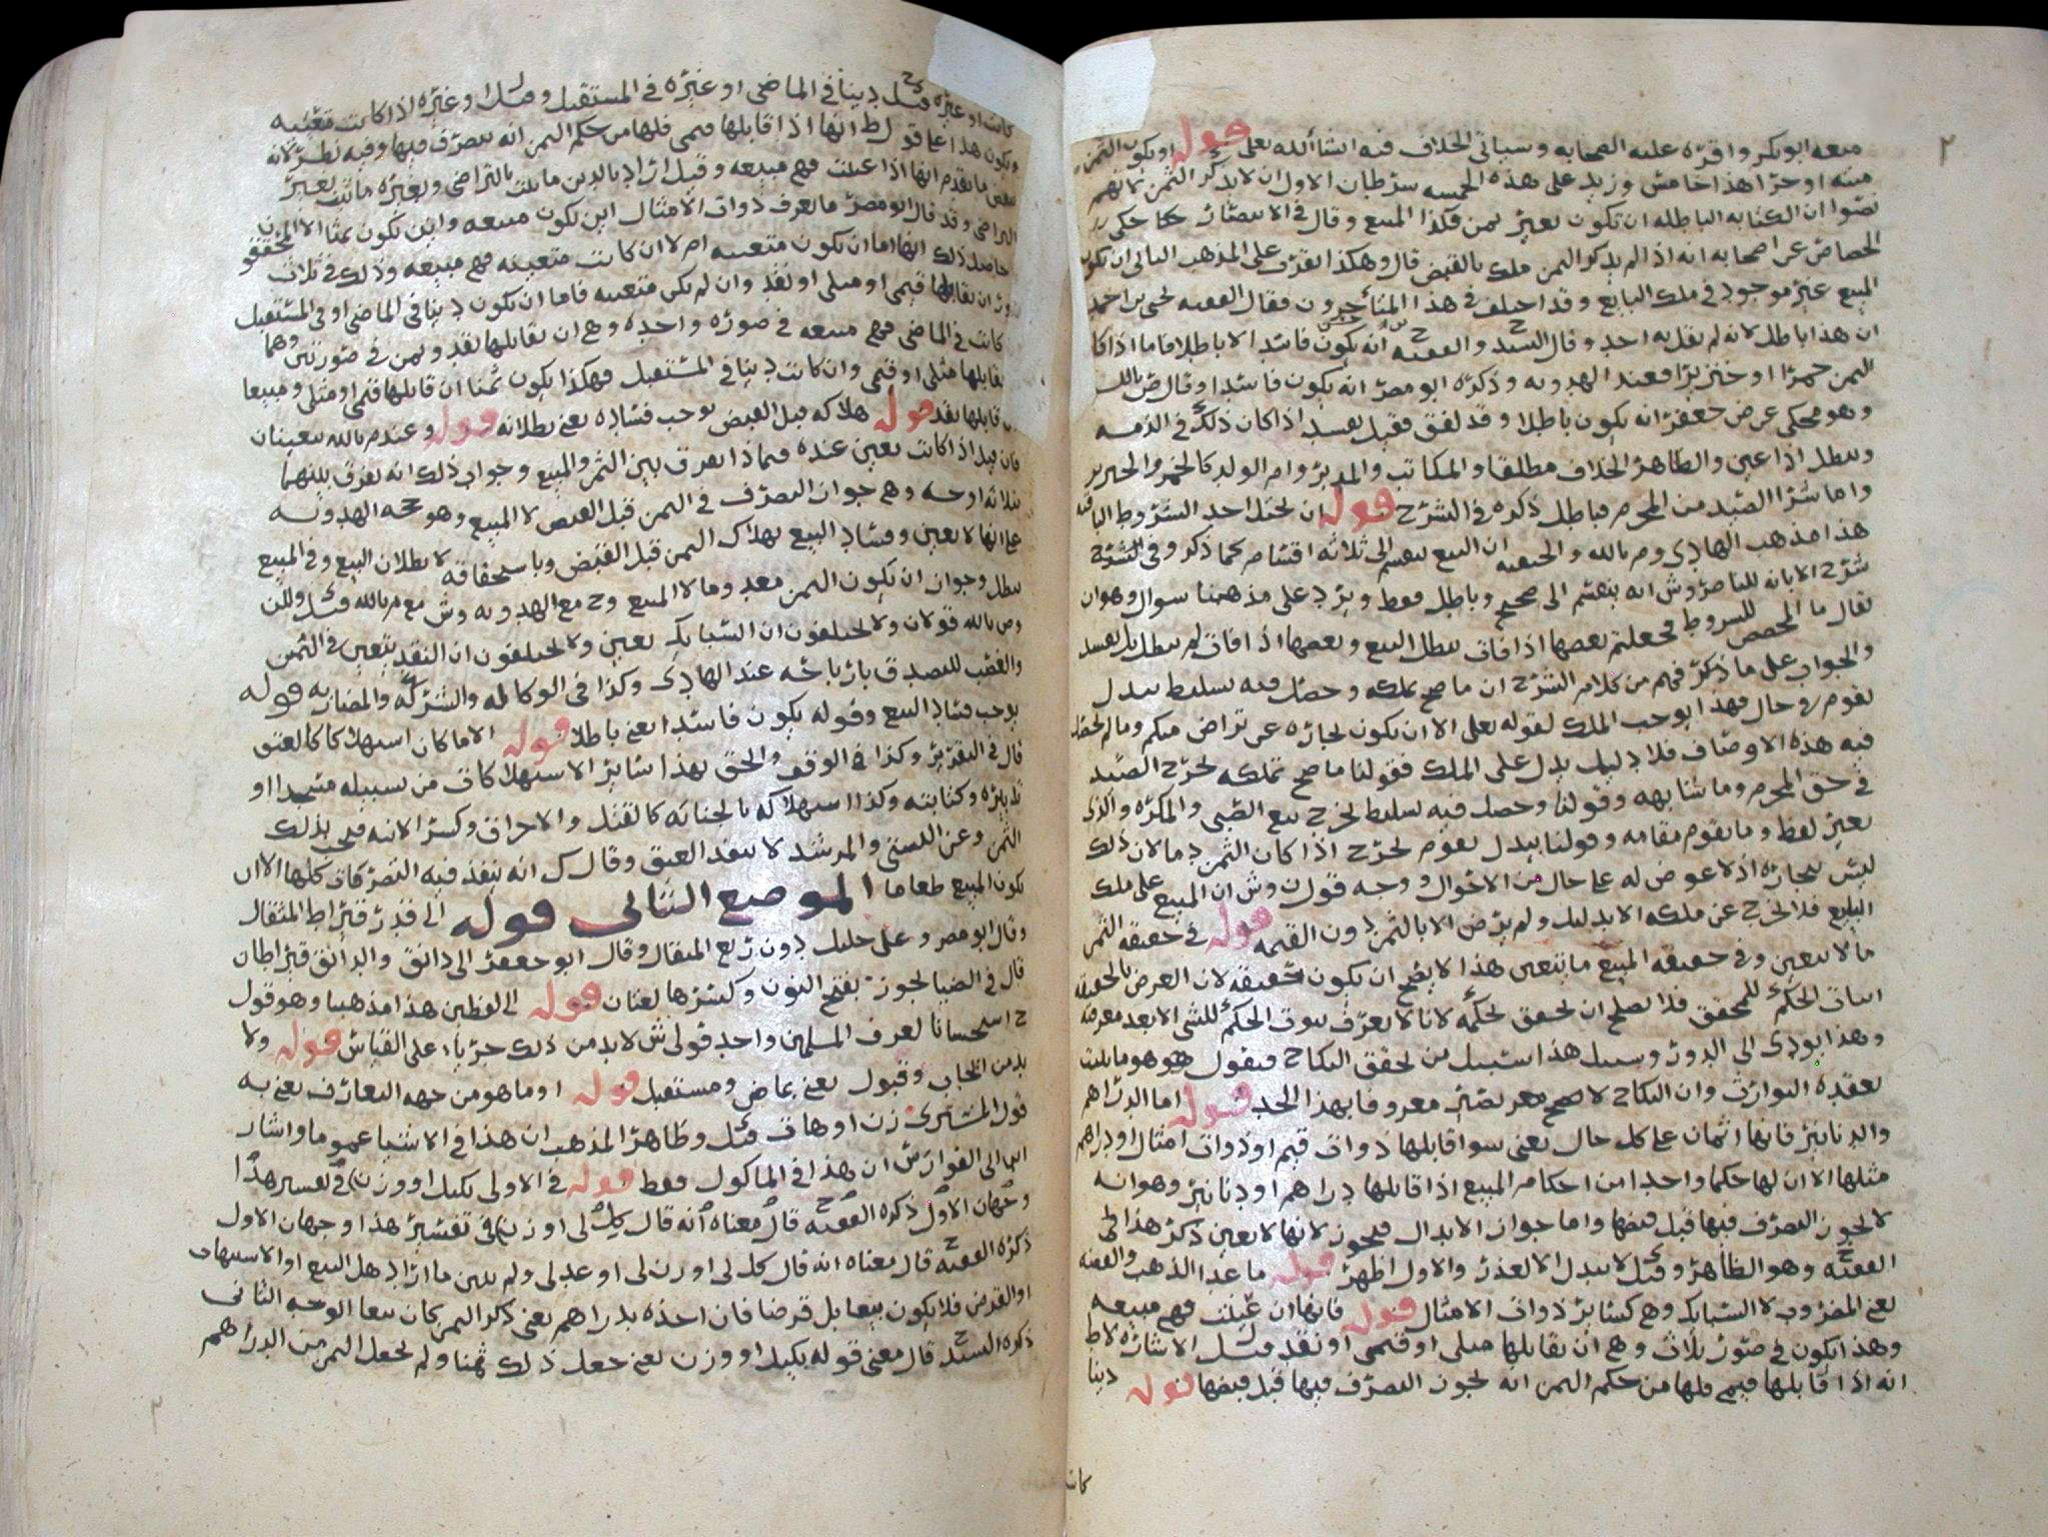 منعه ابو بكر واقره عليه الصحابه وسياتي الخلاف فيه انشاالله تعالى قوله او يكون الثمن
ميته او حرا هذا خامس وزيد على هذه الخمسه شرطان الاول ان لا يذكر الثمن لانهم
نصوا ان الكتابه الباطله ان تكون بغير ثمن فكذا المبيع وقال في الانتصار حكا حكى
الخصاص عن اصحابه انه اذا لم يذكر الثمن ملك بالقبض قال وهكذا تقدير على المذهب الثاني ان تكون
المبيع غير موجود في ملك البايع وقد اختلف في هذا المتاخرون فقال الفقيه يحيى بن احمد
ان هذا باطل لانه لم يقل به احد وقال السيد ح والفقيه ح انه يكون فاسدا لا باطلا فاما اذا كا
الثمن خمرا او خنزيرا فعند الهدويه وذكره ابو مضر انه يكون فاسدا وقال ض بالله
وهو محكي عن ض جعفر انه يكون باطلا وقد لفق فقيل يفسد اذا كان ذلك في الذمه
ويبطل اذا عين والظاهر الخلاف مطلقا والمكاتب والمدبر وام الولد كالخمر والخنزير
واما شرا الصيد من المحرم فباطل ذكره في الشرح قوله ان يختل احد الشروط الباقيه
هذا مذهب الهادي وم بالله والحنفيه ان البيع ينقسم الى ثلاثه اقسام كما ذكر وفي الشرح
شرح الابانه للناصر وش انه ينقسم الى صحيح وباطل فقط ويرد على مذهبنا سوال وهو ان
يقال ما المخصص للشروط فجعلتم بعضها اذا فات يبطل البيع وبعضها اذا فات لم يبطل بل يفسد
والجواب على ما ذكر فهم من كلام الشرح ان ما صح تملكه وحصل فيه تسليط ببدل
يقوم في حال فهذا يوجب الملك لقوله تعالى الا ان تكون تجاره عن تراض منكم وما لم يحصل
فيه هذه الاوصاف فلا دليل يدل على الملك فقولنا ما صح تملكه يخرج الصيد
في حق المحرم وما شابهه وقولنا وحصل فيه تسليط يخرج بيع الصبي والمكره والذي
بغير لفظ وما يقوم مقامه وقولنا ببدل يقوم يخرج اذا كان الثمن دما لان ذلك
ليس بتجاره اذ لا عوض له على حال من الاحوال ووجه قول ن وش ان المبيع على ملك
البايع فلا يخرج عن ملكه الا بدليل ولم يرض الا بالثمن دون القيمه قوله في حقيقه الثمن
ما لا يتعين وفي حقيقه المبيع ما يتعين هذا لا يصح ان يكون حقيقه لان الغرض بالحقيقه
اثبات الحكم للمحقق فلا يصلح ان يحقق بحكمه لانا لا نعرف ثبوت الحكم للشي الا بعد معرفته
وهذا يودي الى الدور وسبيل هذا سبيل من يحقق النكاح فيقول هو ما يثبت
بعقده التوارث وان النكاح لا يصح معه يصير معروفا بهذا الحد قوله اما الدراهم
والدنانير فانها اثمان على كل حال يعني سوا قابلها ذوات قيم او ذوات امثال او دراهم
مثلها الا ان لها حكما واحدا من احكام المبيع اذا قابلها دراهم او دنانير وهو انه
لا يجوز التصرف فيها قبل قبضها واما جواز الابدال فيجوز لانها لا تعين ذكر هذا لى
الفقيه ح وهو الظاهر وقيل لا يبدل الا لعذر والاول اظهر قوله ما عدا الذهب والفضه
يعني المضروب لا السبايك وهي كسائر ذوات الامثال قوله فانها ان عينت فهي مبيعه
وهذا يكون في صور ثلاث وهي ان يقابلها مثلي او قيمي او نقد مثل الاشاره لا ط
انه اذا قابلها قيمي فلها من حكم الثمن انه يجوز التصرف فيها قبل قبضها قوله دينا
كانت
كانت او غيره قيل ح دينا في الماضي او غيره في المستقبل وقيل ل او غيره اذا كانت متعينه
ويكون هذا على قول ط انها اذا قابلها قيمي فلها من حكم الثمن انه يتصرف فيها وفيه نظر لانه
ما تقدم انها اذا عينت فهي مبيعه وقيل اراد بالدين ما يثبت بالتراضي وبغيره ما يثبت بغير
التراضي وقد قال ابو مضر ما يعرف ذوات الامثال اين يكون مبيعه واين تكون ثمنا الا المحققو
حاصل ذلك انها اما ان تكون متعينه ام لا ان كانت متعينه فهي مبيعه وذلك في ثلاث
صور ان يقابلها قيمي او مثلي او نقد وان لم تكن متعينه فاما ان تكون دينا في الماضي او في المستقبل
كانت في الماضي فهي مبيعه في صوره واحده وهي ان يقابلها نقد وثمن في صورتين وهما
يقابلها مثلي او قيمي وان كانت دينا في المستقبل فهكذا يكون ثمنا ان قابلها قيمي او مثلي ومبيعا
ن قابلها نقد قوله هلاكه قبل القبض يوجب فساده يعني بطلانه قوله وعند م بالله يتعينان
فان قيل اذا كانت تعين عنده فماذا يفرق بين الثمن والمبيع وجواب ذلك انه يفرق بينهما
بثلاثه اوجه وهي جواز التصرف في الثمن قبل القبض لا المبيع وهو حجه الهدويه
على انها لا تعين وفساد البيع بهلاك الثمن قبل القبض وباستحقاقه لا بطلان البيع وفي المبيع
يبطل وجواز ان يكون الثمن معدوما لا المبيع وح مع الهدويه وش مع م بالله قيل ولان
وم بالله قولان ولا يختلفون ان السبايك تعين ولا يختلفون ان النقد يتعين في الثمن
والغصب للتصدق بارباحه عند الهادي وكذا في الوكاله والشركه والمضاربه قوله
يوجب فساد البيع وقوله يكون فاسدا يعني باطلا قوله الا ما كان استهلاكا كالعتق
قال في التقرير وكذا في الوقف والحق بهذا سائر الاستهلاكات من تسبيله مسجدا او
تدبيره وكتابته وكذا استهلاكه بالجنايه كالقتل والاحراق وكسر الانيه فيجب بذلك
الثمن وعن البستي والمرشد لا ينفذ العتق وقال ك انه ينفذ فيه التصرفات كلها الا ان
يكون المبيع طعاما الموضع الثاني قوله الى قدر قيراط المثقال
وقال ابو مضر وعلي خليل دون ربع المثقال وقال ابو جعفر الى دانق والدانق قيراطان
قال في الضيا يجوز بفتح النون وكسرها لغتان قوله الى لفظين هذا مذهبنا وهو قول
ح استحسانا لعرف المسلمين واحد قولي ش لا بد من ذلك جريا على القياس قوله ولا
بد من ايجاب وقبول يعني بماض ومستقبل قوله او ما هو من جهه التعارف يعني به
قول المشتري زن او هات قيل وظاهر المذهب ان هذا في الاشيا عموما واشار
ابنا الى الفوارس ان هذا في الماكول فقط قوله في الاولى بكيل او وزن في تفسير هذا
وجهان الاول ذكره الفقيه ح قال معناه انه قال كل لي او زن في تفسير هذا وجهان الاول
ذكره الفقيه ح قال معناه انه قال كل لي او زن لي او عد لي ولم يبين ما اراد هل البيع او الاستيهاب
او القرض فلا يكون بيعا بل قرضا فان اخذه بدراهم يعني ذكر الثمن كان بيعا الوجه الثاني
ذكره السيد ح قال معنى قوله بكيل او وزن يعني جعل ذلك ثمنا ولم يجعل الثمن من الدراهم